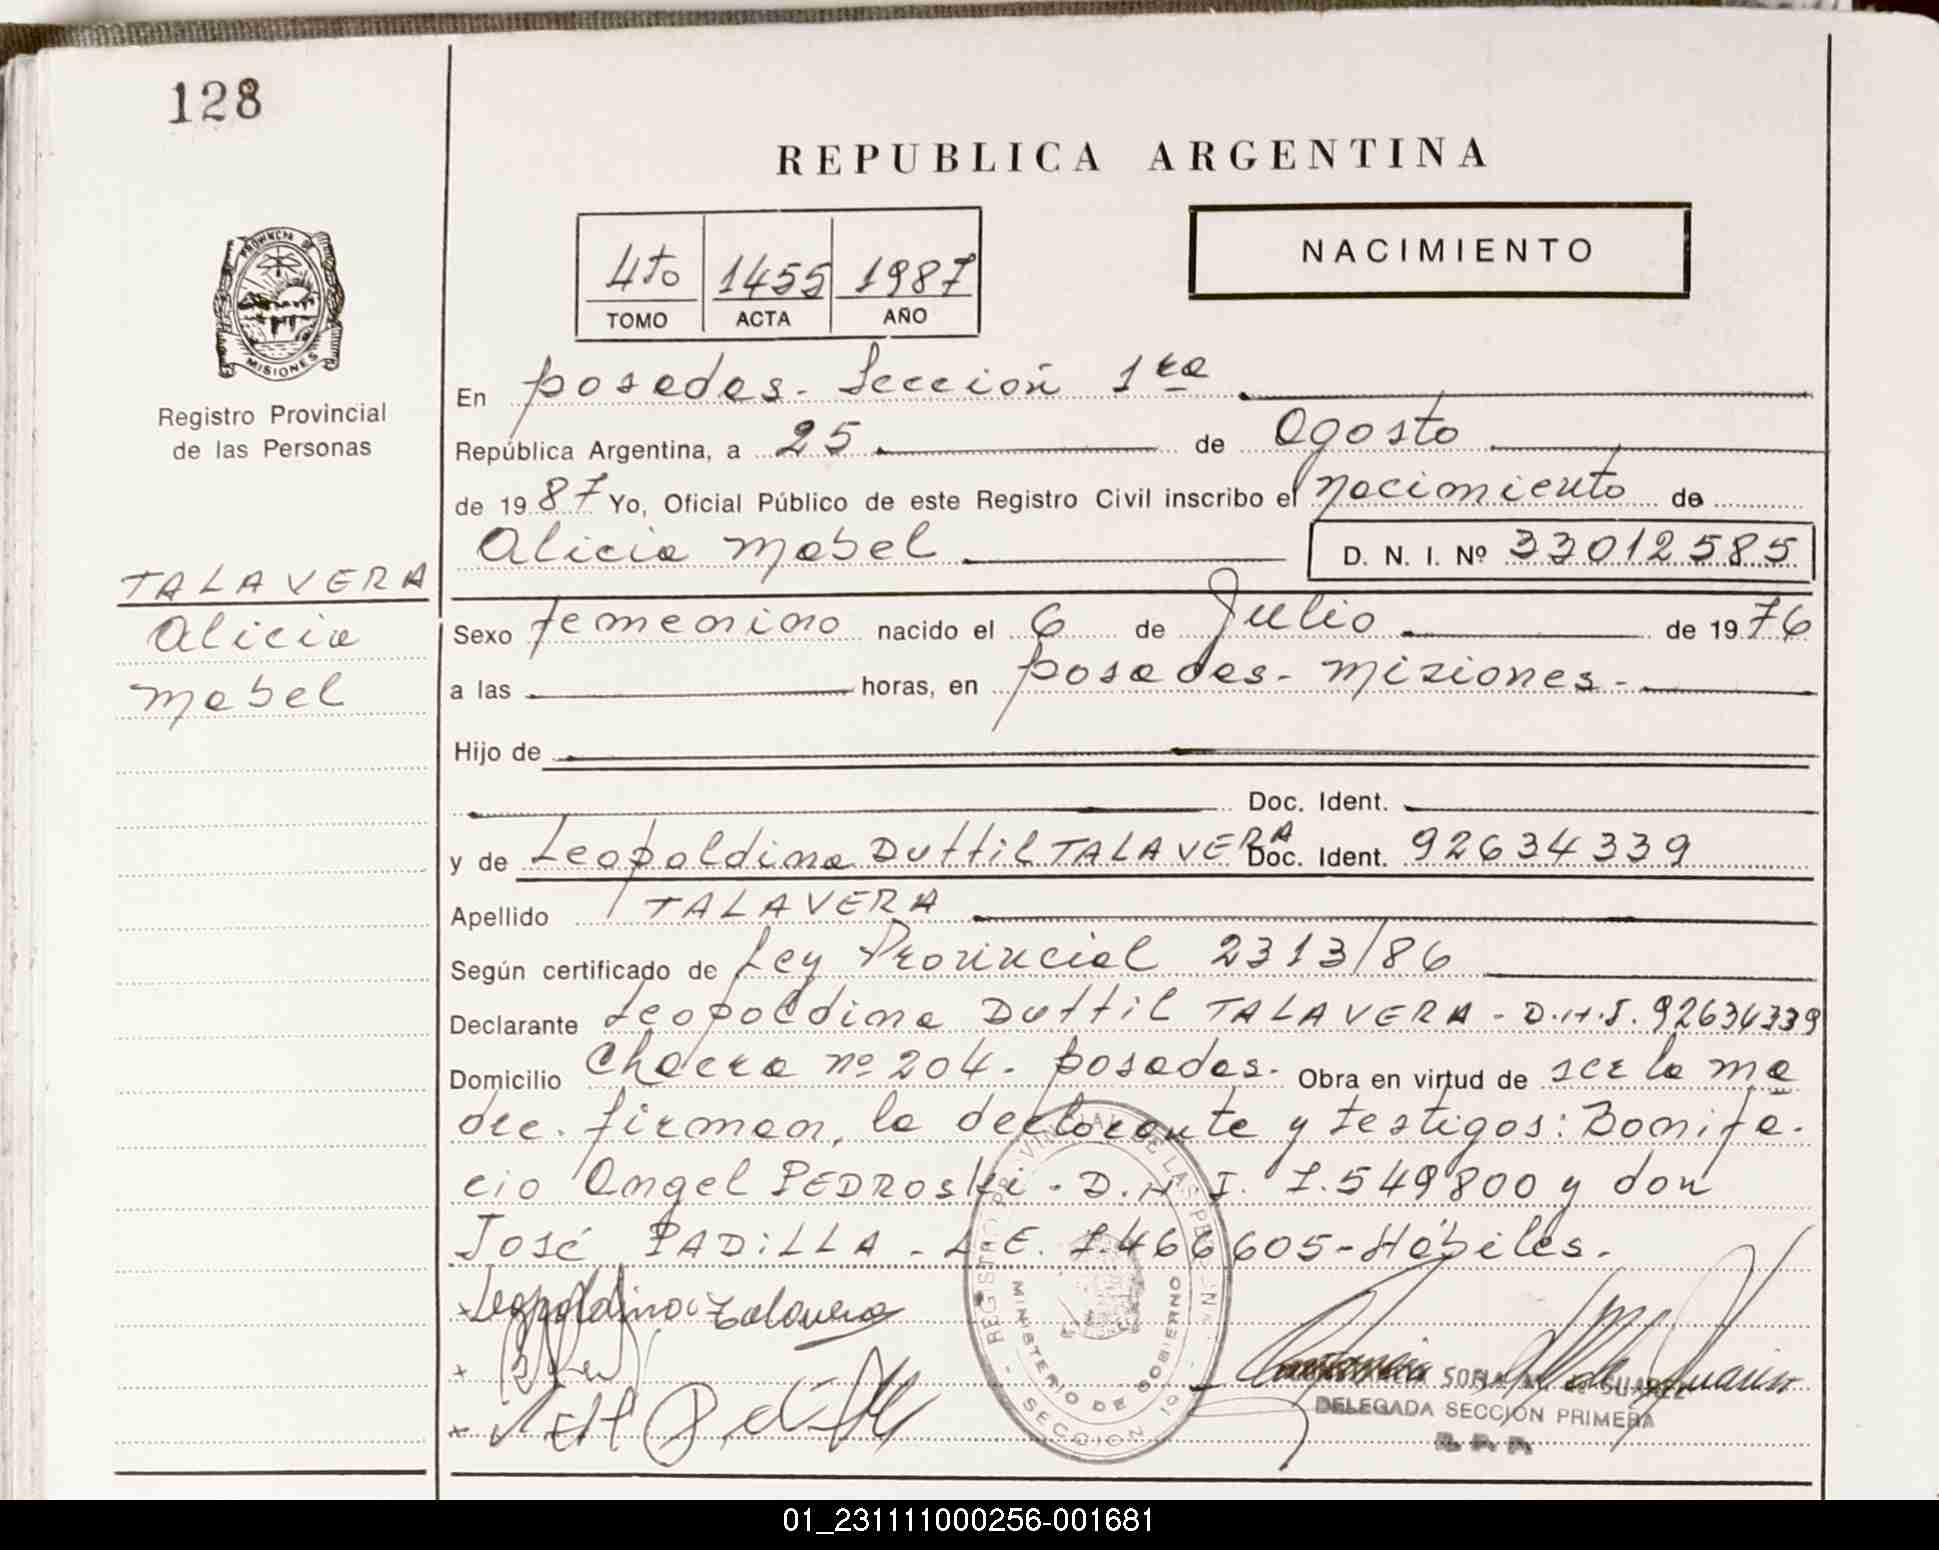 128
REPUBLICA ARGENTINA
4to 1455 1987
TOMO ACTA AÑO
NACIMIENTO
PROVINCIA DE
MISIONES
Registro Provincial
de las Personas
En Posadas - Sección 1ra
República Argentina, a 25 de Agosto
de 1987 Yo, Oficial Público de este Registro Civil inscribo el nacimiento de
Alicia Mabel D. N. I. Nº 33012585
TALAVERA
Alicia
Mabel
Sexo femenino nacido el 6 de Julio de 1976
a las horas, en Posadas - Misiones -
Hijo de
Doc. Ident.
y de Leopoldina Duttil TALAVERA Doc. Ident. 92634339
Apellido TALAVERA
Según certificado de Ley Provincial 2313/86
Declarante Leopoldina Duttil TALAVERA - D.N.I. 92634339
Domicilio Chacra nº 204 - Posadas - Obra en virtud de ser la ma
dre. firman, la declarante y testigos: Bonifa-
cio Angel PEDROSKI - D.N.I. 7.549800 y don
José PADiLLA - L.E. 7.466605 - Hábiles.
Leopoldina Talavera
REGISTRO PROVINCIAL DE LAS PERSONAS
MINISTERIO DE GOBIERNO
SECCION 1º
DELEGADA SECCIÓN PRIMERA
R. P. P.
01_231111000256-001681